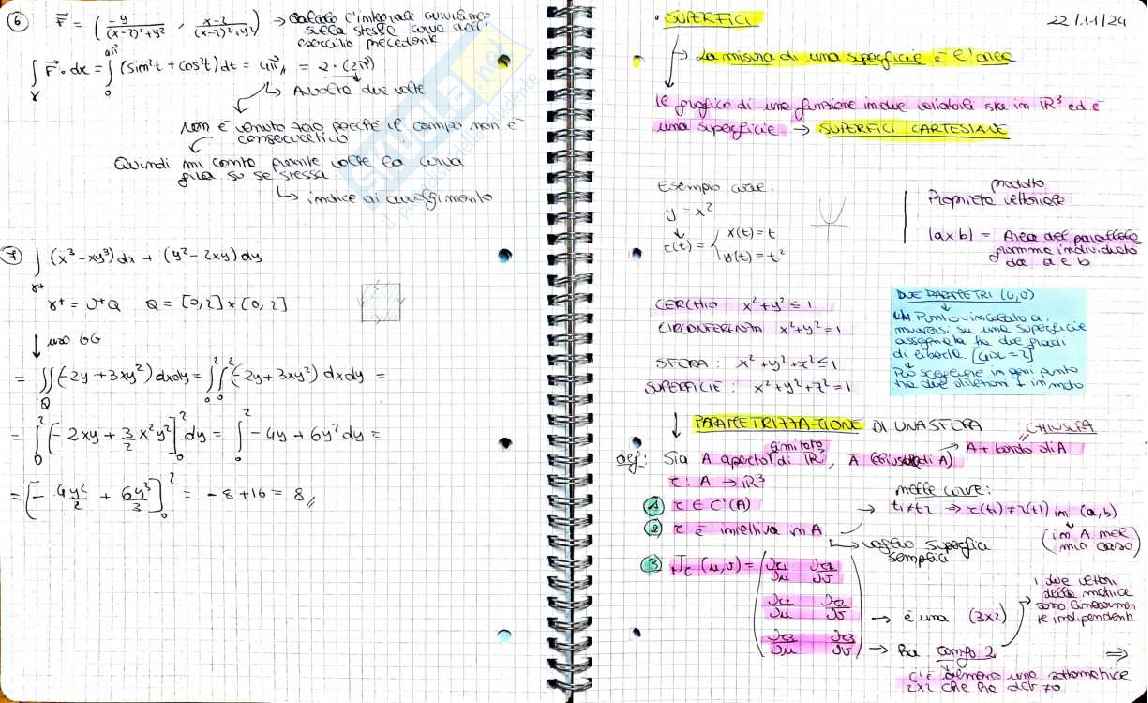 6) F⃗ = ( -y / (x-2)²+y² , x-2 / (x-2)²+y² ) → calcolo l'integrale curvilineo
sulla stessa curva dell'
esercizio precedente
∫γ F⃗ · dr = ∫₀^4π (sin²t + cos²t) dt = 4π = 2·(2π)
↳ Avvolto due volte
Non è venuto zero perché il campo non è
conservativo
Quindi mi conto quante volte la curva
gira su se stessa
↳ indice di avvolgimento
7) ∫γ+ (x³ - xy³) dx + (y² - 2xy) dy
γ+ = ∂+Q Q = [0,2] × [0,2]
↓ uso GG
= ∬Q (-2y + 3xy²) dxdy = ∫₀² ∫₀² (-2y + 3xy²) dxdy =
= ∫₀² [-2xy + 3/2 x²y²]₀² dy = ∫₀² -4y + 6y² dy =
= [- 4y²/2 + 6y³/3]₀² = -8 + 16 = 8
• SUPERFICI 22/11/24
→ La misura di una superficie è l'area
Il grafico di una funzione in due variabili sta in ℝ³ ed è
una superficie → SUPERFICI CARTESIANE
Esempio curve:
y = x²
r(t) = { x(t) = t
y(t) = t²
Proprietà prodotto vettoriale
|a×b| = Area del parallelo
gramma individuato
da a e b
CERCHIO x² + y² ≤ 1
CIRCONFERENZA x² + y² = 1
SFERA: x² + y² + z² ≤ 1
SUPERFICIE: x² + y² + z² = 1
DUE PARAMETRI (u,v)
Un Punto vincolato a
muoversi su una superficie
assegnata ha due gradi
di libertà
Può scegliere in ogni punto
tra due direzioni
↓ PARAMETRIZZAZIONE DI UNA SFERA
CHIUSURA
def: Sia A aperto limitato di ℝ², A (chiusura di A) → A + bordo di A
r: A → ℝ³
1) r ∈ C¹(A)
nelle curve:
2) r è iniettiva in A → t₁ ≠ t₂ ⇒ r(t₁) ≠ r(t₂) in (a,b)
(in A nel
mio caso)
↳ voglio superfici
semplici
3) Jr (u,v) = ( ∂r₁/∂u ∂r₁/∂v
∂r₂/∂u ∂r₂/∂v → è una (3x2)
∂r₃/∂u ∂r₃/∂v ) → Ha rango 2 ⇒
i due vettori
della matrice
sono linearmen
te indipendenti
c'è almeno una sottomatrice
2x2 che ha det ≠ 0